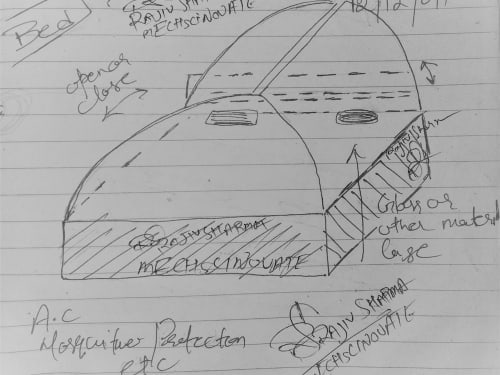 Bed
RAJIV SHARMA
MECHSCINOVATE
18/12/01
open or
close
RAJIV SHARMA
MECHSCINOVATE
Glass or
other material
base
A.C
Mosquitoes Protection
etc
RAJIV SHARMA
MECHSCINOVATE